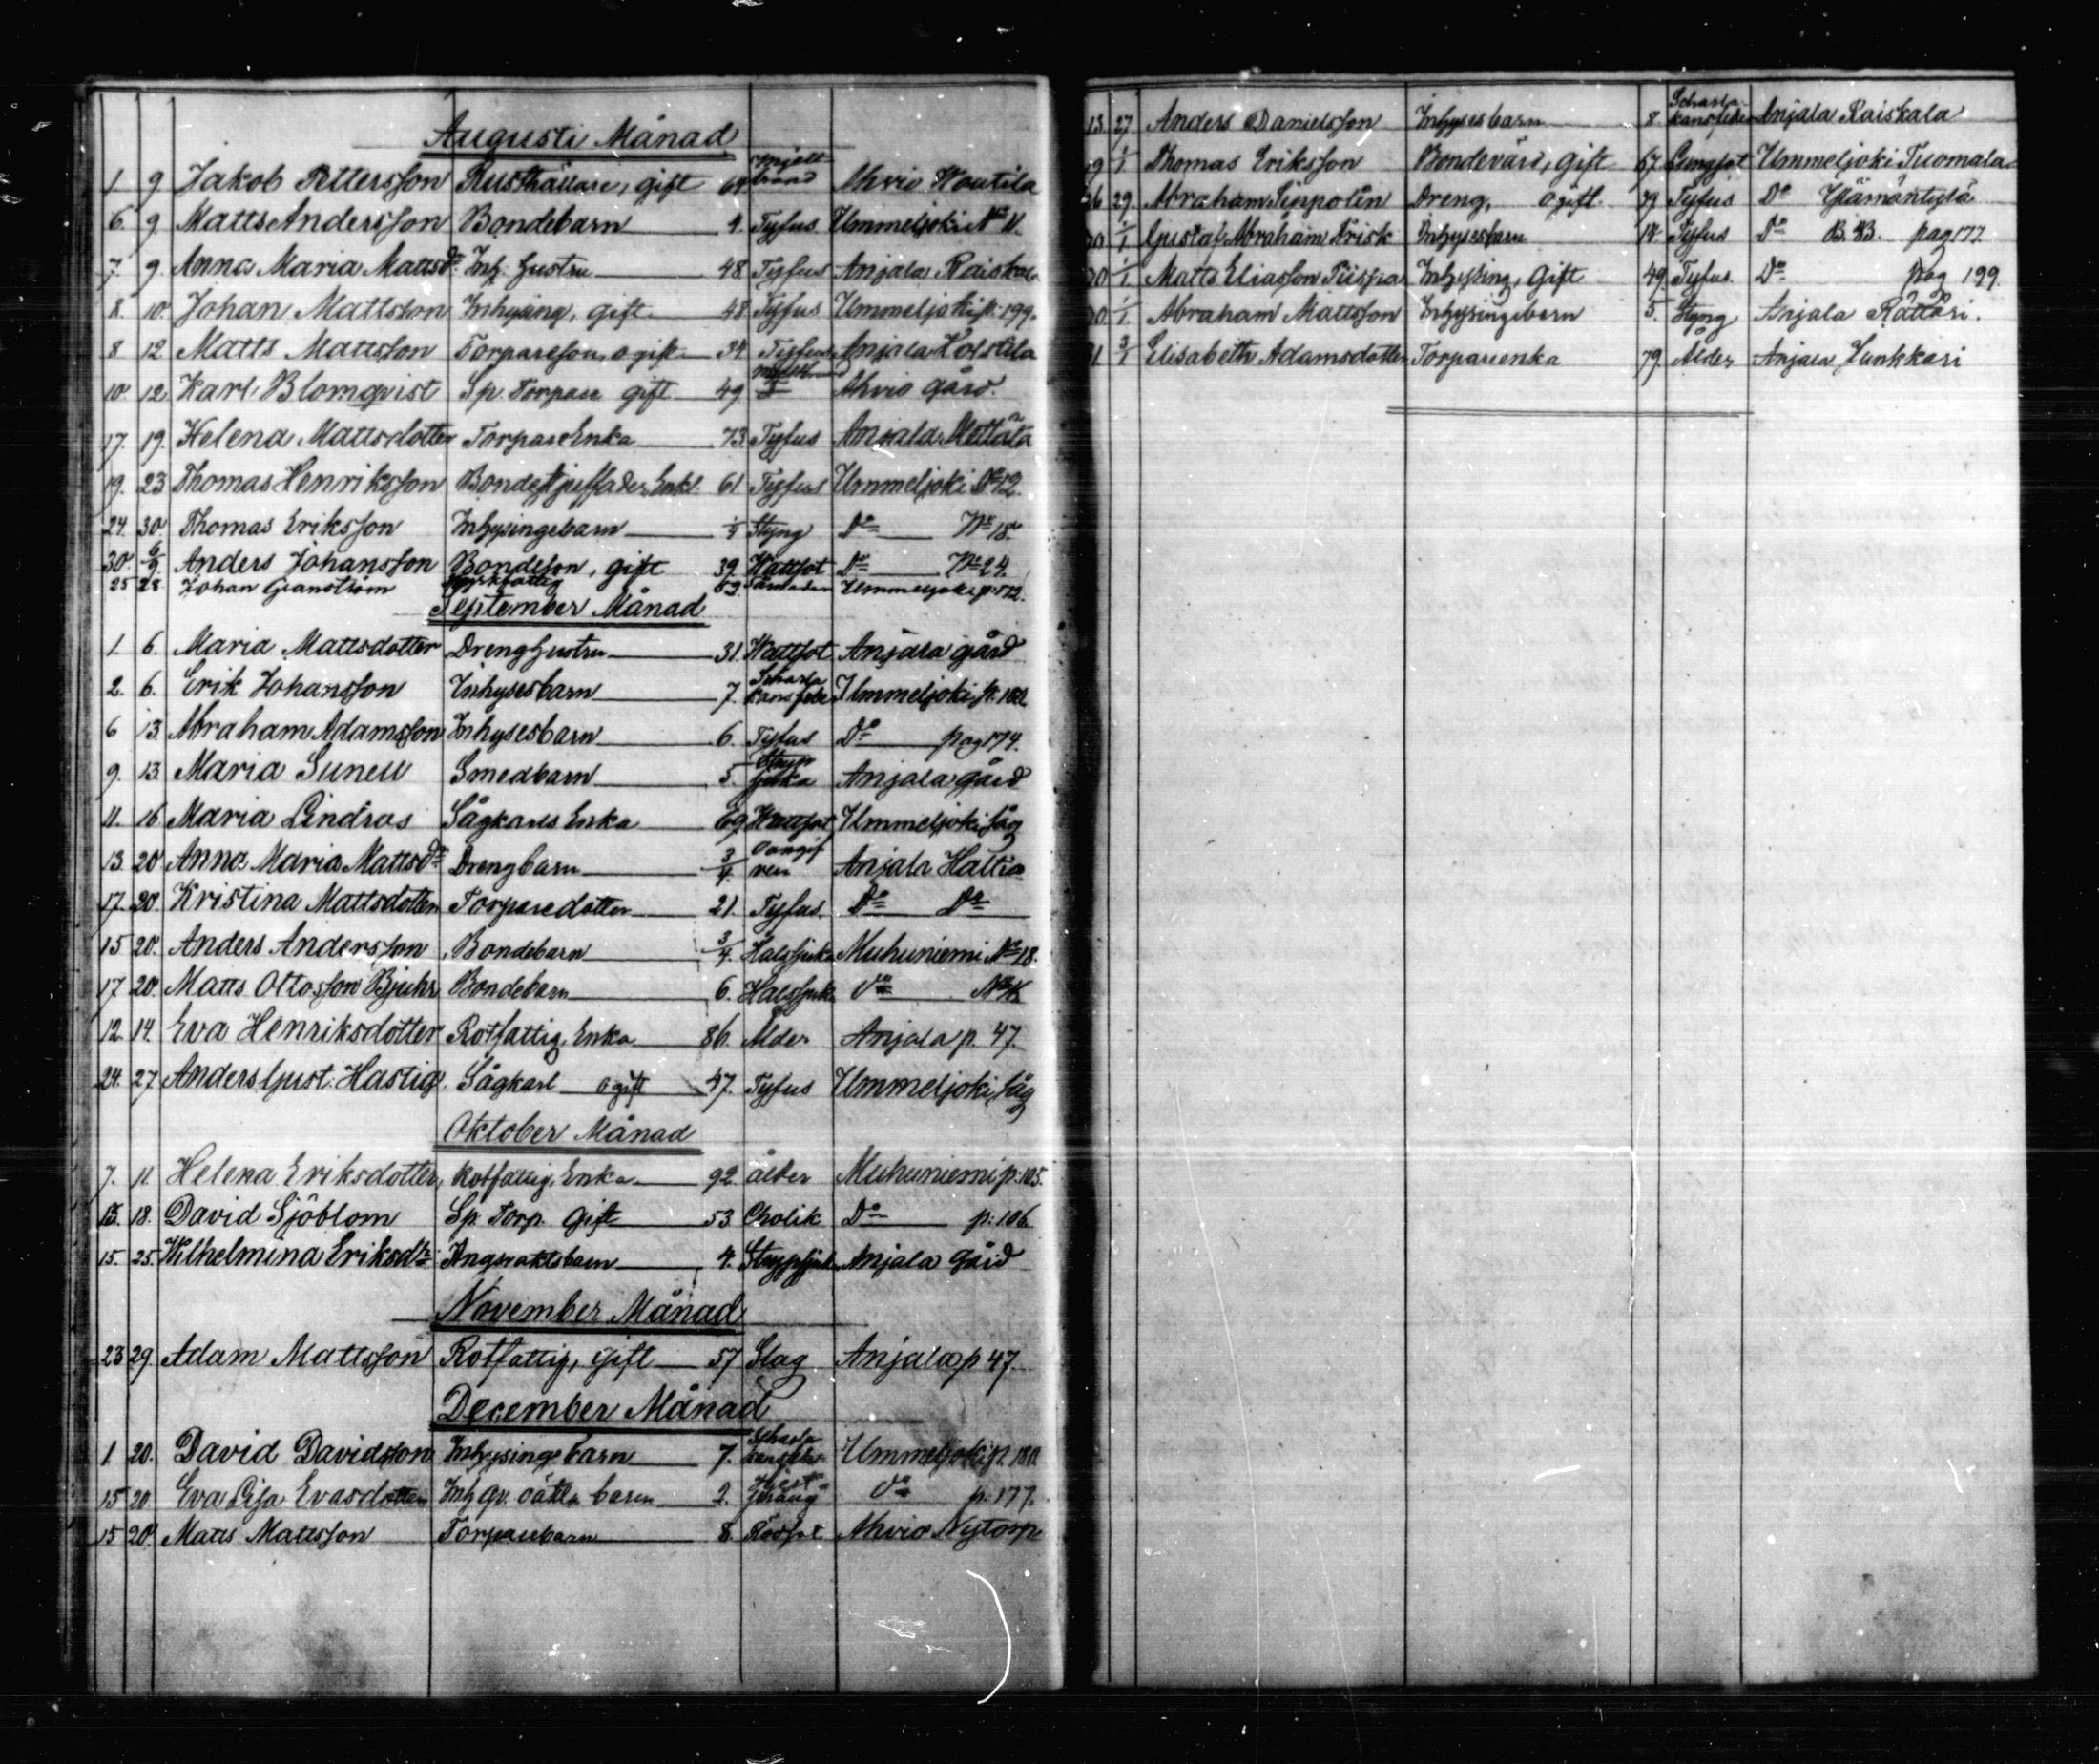 Augusti Månad
1 9 Jakob Pettersson Rusthållare, gift 64 Mjältbrand Ahvio Koutila
6. 9 Matts Andersson Bondebarn 4. Tyfus Ummeljoki
7. 9. Anna Maria Mattsdr Inh. hustru 48 Tyfus Anjala Raiskala
8. 10. Johan Mattsson Inhysing, gift 48 Tyfus Ummeljoki p. 199.
8 12 Matts Mattsson Torpareson ogift 34 Tyfus Anjala Holstila
10. 12. Karl Blomqvist Sp. Torpare gift 49 Ahvio gård.
17. 19. Helena Mattsdotter Torpare Enka 73 Tyfus Anjala Mettälä
19. 23 Thomas Henriksson Bonde Enkl. 61 Tyfus Ummeljoki No 12.
24. 30. Thomas Eriksson Inhysingebarn Styng Do No 18.
30. 6/9. Anders Johansson Bondeson, gift 39. Wattsot Do No 24.
25 28. Johan Granström 63. Ummeljoki p. 172.
September Månad
1. 6. Maria Mattsdotter Dreng hustru 31. Wattsot Anjala gård
2. 6. Erik Johansson Inhysesbarn 7. Scharlakansfeber Ummeljoki p. 180.
6 13. Abraham Adamsson Inhysesbarn 6. Tyfus Do pag 174.
9. 13. Maria Sunell Smedbarn 5. Strupsjuka Anjala gård
11. 16 Maria Lindroos Sågkarls Enka 69 Wattsot Ummeljoki såg
13. 20 Anna Maria Mattsdr Drengbarn 3/4. Oangifven Anjala Haltia
17. 20. Kristina Mattsdotter Torparedotter 21. Tyfus. Do Do
15 20. Anders Andersson Bondebarn 3/4. Halssjuka Muhuniemi No 18.
17. 20. Matts Ottosson Bjuhr Bondebarn 6. Halssjuka Do
12. 14. Eva Henriksdotter Rotfattig Enka 86. Ålder Anjala p. 47.
24. 27 Anders Gust. Hastig Sågkarl ogift 47. Tyfus Ummeljoki såg
Oktober Månad
7. 11. Helena Eriksdotter, Rotfattig, Enka 92 ålder Muhuniemi p. 105.
13. 18. David Sjöblom Sp. Torp. Gift 53 Cholik Do p. 106
15. 25. Wilhelmina Eriksdtr. Ångvaktsbarn 4. Strypsjuka Anjala Gård
November Månad
23 29. Adam Mattsson Rotfattig, Gift 57 Slag Anjala p 47.
December Månad
1 20. David Davidsson Inhysinge barn 7. Scharlakansfeber Ummeljoki p. 180.
15 20. Eva Lisa Evasdotter Inh. qv. oäkta barn 2. Do p. 177.
15 20. Matts Mattsson Torparebarn 8. Rödsot Ahvio Nytorp
13. 27 Anders Danielsson Inhysesbarn 8. Scharlakansfeber Anjala Raiskala
1/1 Thomas Eriksson Bondevärd, Gift 67. Lungsot Ummeljoki Tuomala
26 29. Abraham Sinpolin Dreng, Ogift. Tyfus Do Ylämäntylä
1/1 Gustaf Abraham Frisk Inhysesbarn Tyfus Do B. B. pag 177.
1/1 Matts Eliasson Piispa Inhysing, Gift 49. Tyfus. Do pag 199.
1/1. Abraham Mattsson Inhysingebarn 5. Styng Anjala Rättäri.
31 3/1 Elisabeth Adamsdotter Torpareenka 79. Ålder Anjala Junkkari